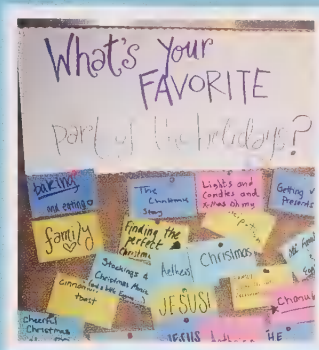 What's your
FAVORITE
part of the holidays?
baking
and eating
The
Christmas
Story
Lights and
Candles and
X-Mas oh my
Getting
Presents
family
Finding the
perfect
Christmas
Stockings &
Christmas Music
Aetheis
Christmas
JESUS!
Cinnamon
toast
Chanuk
Cheerful
Christmas
JESUS
THE